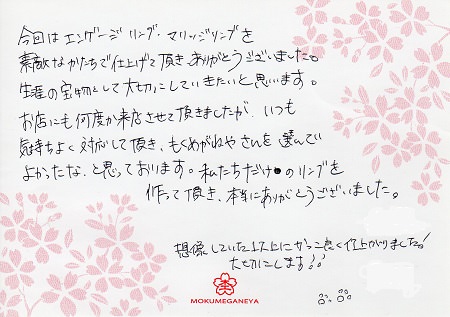 今回はエンゲージリング・マリッジリングを
素敵なかたちで仕上げて頂きありがとうございました。
生涯の宝物として大切にしていきたいと思います。
お店にも何度か来店させて頂きましたが、いつも
気持ちよく対応して頂き、もくめがねやさんを選んで
よかったな、と思っております。私たちだけのリングを
作って頂き、本当にありがとうございました。
想像していた以上にかっこ良く仕上がりました!
大切にします!!
MOKUMEGANEYA